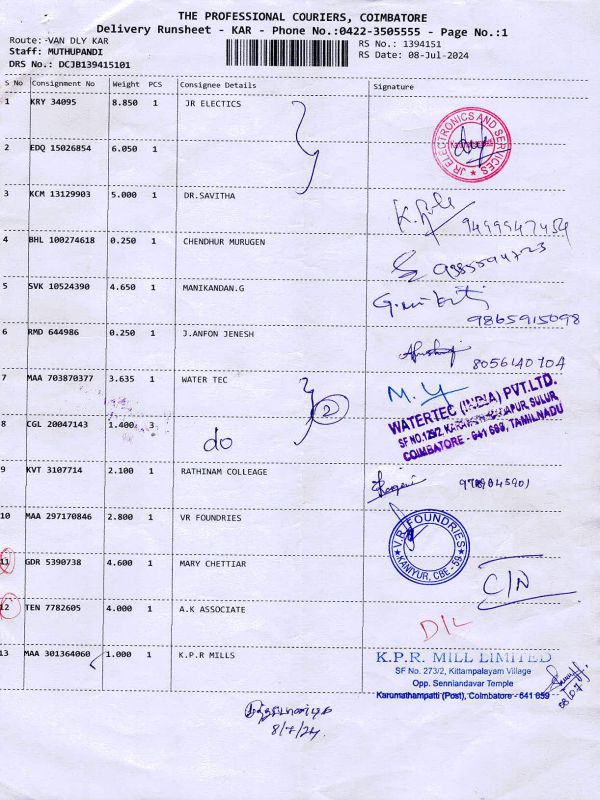 THE PROFESSIONAL COURIERS, COIMBATORE
Delivery Runsheet - KAR - Phone No.:0422-3505555 - Page No.:1
Route: VAN DLY KAR
RS No.: 1394151
Staff: MUTHUPANDI
RS Date: 08-Jul-2024
DRS No.: DCJB139415101
S No Consignment No Weight PCS Consignee Details Signature
1 KRY 34095 8.850 1 JR ELECTICS
JR ELECTRONICS AND SERVICES
2 EDQ 15026854 6.050 1
3 KCM 13129903 5.000 1 DR.SAVITHA
9499947454
4 BHL 100274618 0.250 1 CHENDHUR MURUGEN
9385594723
5 SVK 10524390 4.650 1 MANIKANDAN.G
9865915098
6 RMD 644986 0.250 1 J.ANFON JENESH
8056140704
7 MAA 703870377 3.635 1 WATER TEC
2
WATERTEC (INDIA) PVT.LTD.
SF NO.129/2 SULUR
COIMBATORE - 641 TAMILNADU
8 CGL 20047143 1.400 3 do
9 KVT 3107714 2.100 1 RATHINAM COLLEAGE
10 MAA 297170846 2.800 1 VR FOUNDRIES
V.R. FOUNDRIES
KANIYUR, CBE - 59
11 GDR 5390738 4.600 1 MARY CHETTIAR
C/N
12 TEN 7782605 4.000 1 A.K ASSOCIATE
D/L
13 MAA 301364060 1.000 1 K.P.R MILLS
K.P.R. MILL LIMITED
SF No. 273/2, Kittampalayam Village
Opp. Senniandavar Temple
Karumathampatti (Post), Coimbatore - 641 659
8/7/24